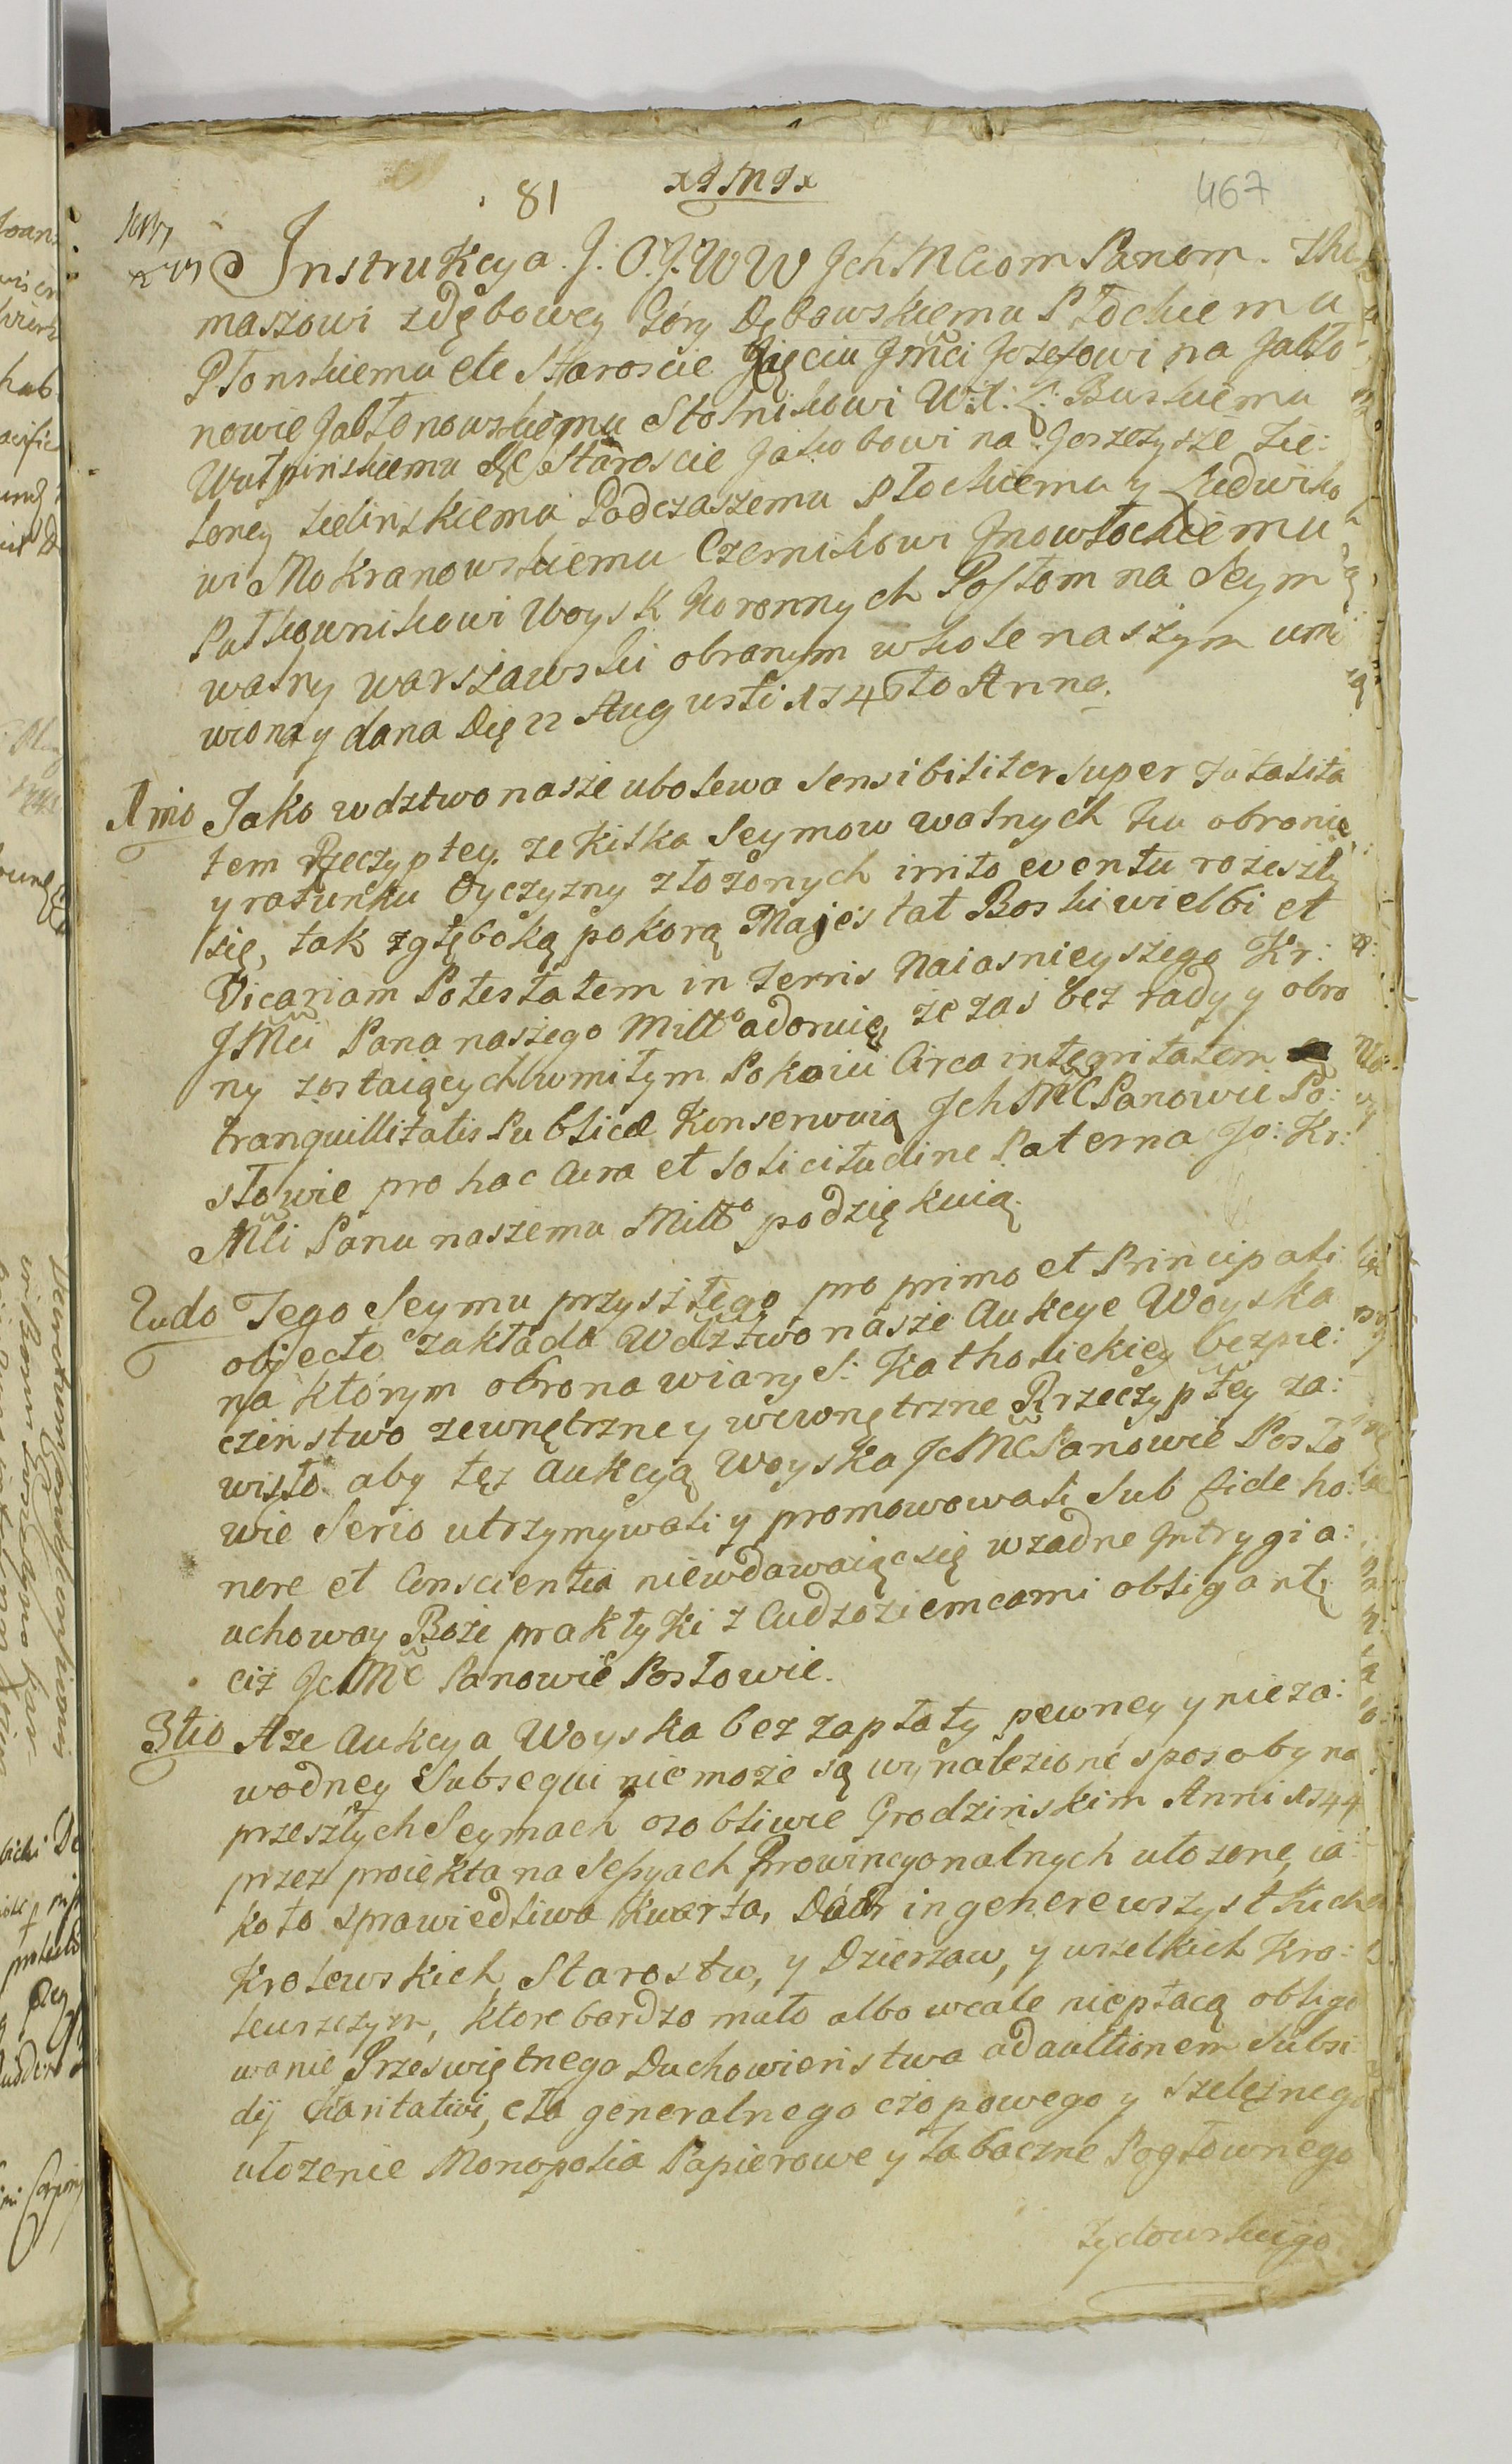 81 xIMIx 467
Instrukcya. J. O. J. W W Jch Mciom Panom. Tho
maszowi zdębowey Góry Dębowskiemu Płockiemu
Płonskiemu etc Staroscie Xięciu Jmci Jozefowi na Jabło
nowie Jabłonowskiemu Stolnikowi W. X. L: Buskiemu
Wołpińskiemu etc Staroscie Jakobowi na Gorzezysze Zie:
loney Zielinskiemu Podczaszemu Płockiemu y Ludwiko
wi Mokranowskiemu Czesnikowi Jnowłockiemu
Pułkownikowi Woysk Koronnych Posłom na Seym
walny warszawski obranym w kole naszym umó
wiona y dana Die 22 Augusti 1746to Anno.
1mo Jako wdztwo nasze ubolewa sensibiliter super fatalita
tem Rzeczyptey. ze kilka Seymow walnych ku obronie
y ratunku Oyczyzny złożonych irrito eventu rozeszły
się, tak zgłęboką pokorą Majestat Boski wielbi et
Vicariam Potestatem in terris Naiasnieyszego Kr:
JMci Pana naszego Miłło adoruię, ze zas bez rady y obro
ny zostaiących w miłym Pokoiu Circa integritatem
tranquillitatis Publicæ konserwuią Jch MC Panowie Po:
słowie pro hac Cura et Solicitudine Paterna Jo: Kr:
Mci Panu naszemu Miłło podziękuią.
2udo Tego Seymu przyszłego pro primo et Principali
objecto zakłada Wdztwo nasze Aukcye Woyska
na którym obrona wiary S: Katholickiey bezpie:
czeństwo zewnętrzne y wewnętrzne Rzeczyptey za:
wisło. aby też Aukcyą Woyska JchMC Panowie Posło
wie Serio utrzymywali y promowowali Sub fide ho:
nore et Conscientia niewdawaiąc się w zadne Jntrygi a:
uchoway Boze praktyki z Cudzoziemcami obligantr
ciz JchMC Panowie Posłowie.
3tio A ze Aukcya Woyska bez zapłaty pewney y nieza:
wodney Subsequi nie moze są wynalezione sposoby na
przeszłych Seymach osobliwie Grodzińskim Anni 1744
przez proiekta na Sessyach Prowincyonalnych ułozone, ia:
ko to sprawiedliwa kwarta, Dóbr in genere wszystkich
Krolewskich, Starostw, y Dzierzaw, y wszelkich Kro:
lewszczyzn, ktore bardzo mało albo wcale niepłacą obligo
wanie Przeswiętnego Duchowieństwa ad auctionem Subsi
dij Charitativi, cła generalnego czopowego y szelęznego
ułozenie Monopolia Papierowe y tabaczne Pogłownego
Zydowskiego